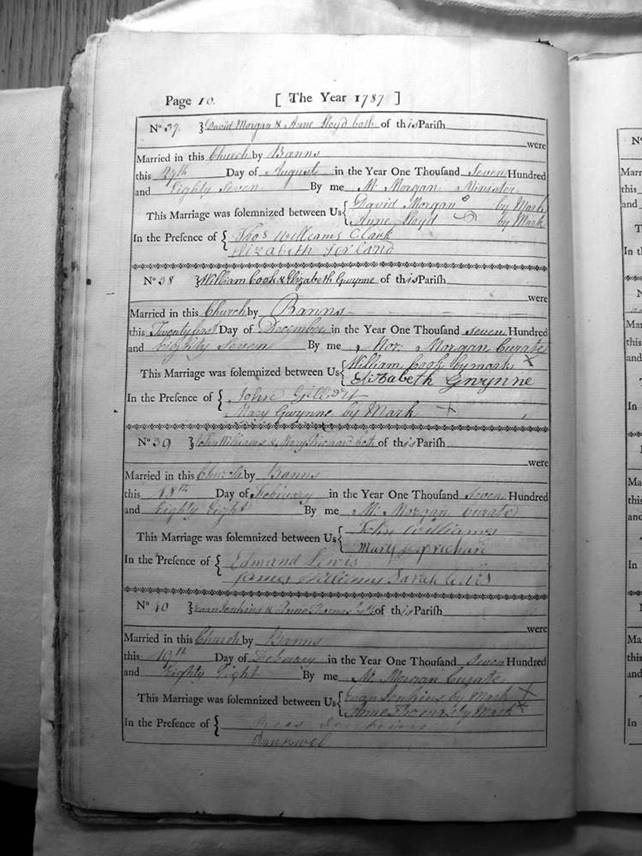 Page 10. [ The Year 1787 ]
No 37 } David Morgan & Anne Lloyd both of this Parish
were
Married in this Church by Banns
this Day of August in the Year One Thousand seven Hundred
and Eighty Seven By me M. Morgan Minister
This Marriage was solemnized between Us { David Morgan by Mark
Anne Lloyd by Mark
In the Presence of { Thos Williams Clark
Elizabeth
No 38 } William Cook & Elizabeth Gwynne of this Parish
were
Married in this Church by Banns
this Twenty first Day of December in the Year One Thousand seven Hundred
and Eighty Seven By me Mor. Morgan Curate
This Marriage was solemnized between Us { William Cook by mark X
Elizabeth Gwynne
In the Presence of { John
Mary Gwynne by Mark +
No 39 } John Williams & Mary both of this Parish
were
Married in this Church by Banns
this 18th Day of February in the Year One Thousand seven Hundred
and Eighty Eight By me M. Morgan Curate
This Marriage was solemnized between Us { John Williams
Mary
In the Presence of { Edmand Lewis
James Williams Sarah
No 40 } Evan Jenkins & Anne both of this Parish
were
Married in this Church by Banns
this 19th Day of in the Year One Thousand seven Hundred
and Eighty Eight By me M. Morgan Curate
This Marriage was solemnized between Us { Evan Jenkins by Mark X
Anne by Mark X
In the Presence of {